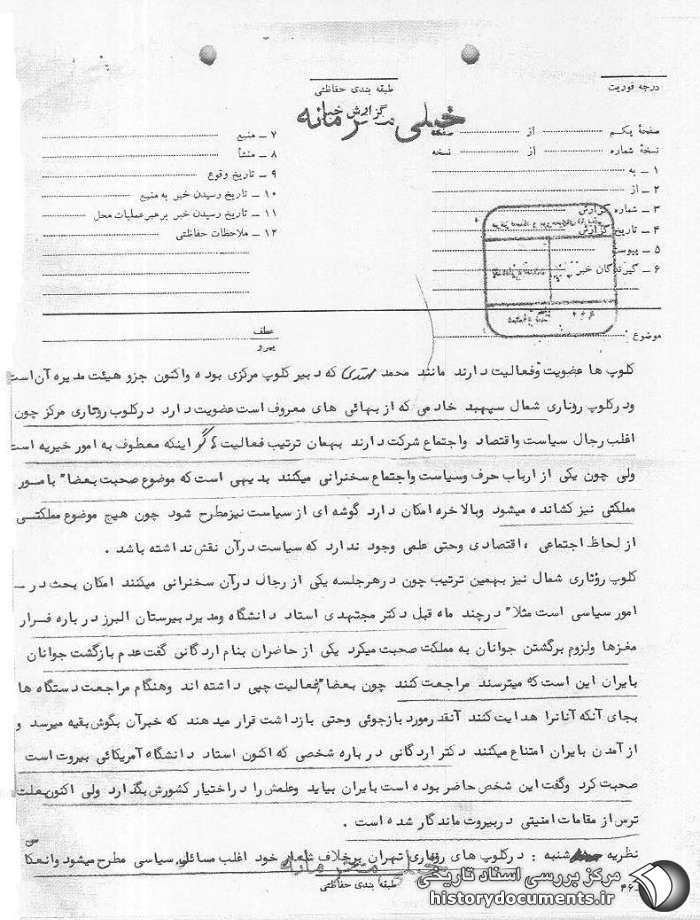 درجه فوریت
طبقه بندی حفاظتی
گزارش خبر
خیلی محرمانه
صفحهٔ یکم ........ از ........ صفحه
نسخهٔ شماره ........ از ........ نسخه
۱ ــ به
۲ ــ از
۳ ــ شماره گزارش
۴ ــ تاریخ گزارش
۵ ــ پیوست
۶ ــ گیرندگان خبر
۷ ــ منبع
۸ ــ منشأ
۹ ــ تاریخ وقوع
۱۰ ــ تاریخ رسیدن خبر به منبع
۱۱ ــ تاریخ رسیدن خبر برهبر عملیات محل
۱۲ ــ ملاحظات حفاظتی
موضوع
عطف
پیرو
کلوپ ها عضویت وفعالیت دارند مانند محمد مهتدی که دبیر کلوپ مرکزی بوده واکنون جزو هیئت مدیره آن است
ودرکلوپ روتاری شمال سپهبد خادمی که از بهائی های معروف است عضویت دارد درکلوپ روتاری مرکز چون
اغلب رجال سیاست واقتصاد واجتماع شرکت دارند بهمان ترتیب فعالیت اگر اینکه معطوف به امور خیریه است
ولی چون یکی از ارباب حرف وسیاست واجتماع سخنرانی میکنند بدیهی است که موضوع صحبت بعضا" با مور
مملکتی نیز کشانده میشود وبالاخره امکان دارد گوشه ای از سیاست نیز مطرح شود چون هیچ موضوع مملکتــی
از لحاظ اجتماعی ، اقتصادی وحتی علمی وجود ندارد که سیاست درآن نقش نداشته باشد .
کلوپ روتاری شمال نیز بهمین ترتیب چون درهرجلسه یکی از رجال درآن سخنرانی میکنند امکان بحث در ــ
امور سیاسی است مثلا" درچند ماه قبل دکتر مجتهدی استاد دانشگاه ومدیر دبیرستان البرز درباره فرار
مغزها ولزوم برگشتن جوانان به مملکت صحبت میکرد یکی از حاضران بنام اردکانی گفت عدم بازگشت جوانان
بایران این است که میترسند مراجعت کنند چون بعضا" فعالیت چپی داشته اند وهنگام مراجعت دستگاه ها
بجای آنکه آنانرا هدایت کنند آنقدر مورد بازجوئی وحتی بازداشت قرار میدهند که خبرآن بگوش بقیه میرسد و
از آمدن بایران امتناع میکنند دکتر اردکانی درباره شخصی که اکنون استاد دانشگاه آمریکائی بیروت است
صحبت کرد وگفت این شخص حاضر بوده است بایران بیاید وعلمش را در اختیار کشورش بگذارد ولی اکنون بعلت
ترس از مقامات امنیتی دربیروت ماندگار شده است .
نظریه شنبه : درکلوپ های روتاری تهران برخلاف شعار خود اغلب مسائل سیاسی مطرح میشود وانعکاس
خیلی محرمانه
طبقه بندی حفاظتی
مرکز بررسی اسناد تاریخی
historydocuments.ir